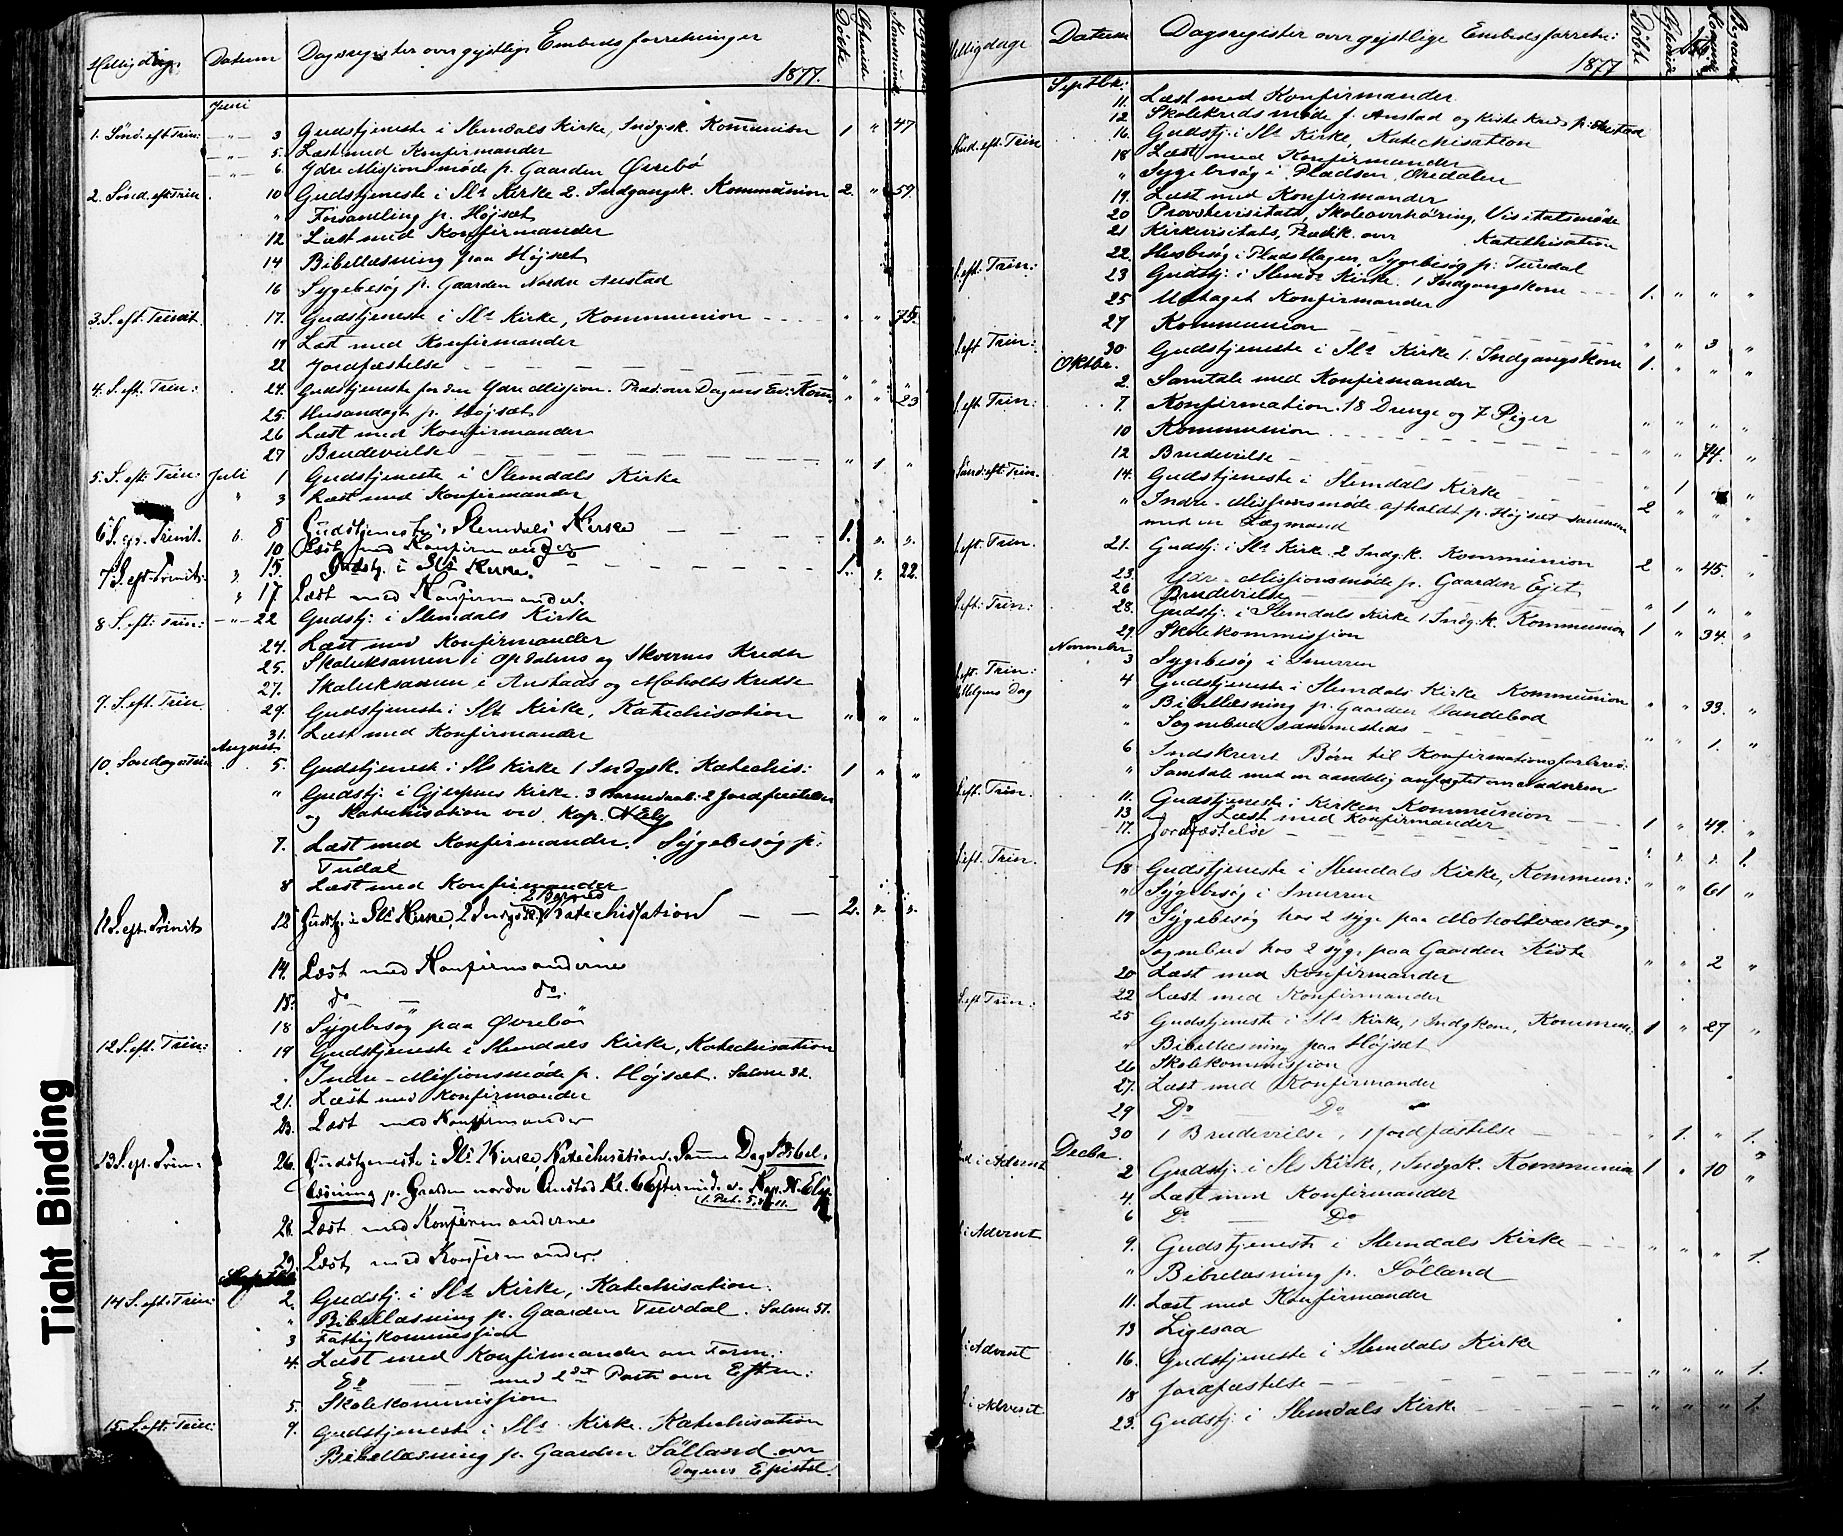 Helligdage. Datum Dagsregister over gejstlige Embedsforretninger 1877. Døbte Kommunik.
Juni
1. Sønd. eft Trin: — " — 3 Gudstjeneste i Slemdals Kirke, Indg.sk. Kommunion 1 " 47
— " — 5. Læst med Konfirmander
— " — 6 Ydre Missionsmøde p. Gaarden Øvrebø
2. Sønd. eft Trin. 10 Gudstjeneste i Sls Kirke 2. Indgangsk. Kommunion 2. " 59.
" Forsamling p. Højsæt
12 Læst med Konfirmander
14 Bibellæsning paa Højsæt
16 Sygebesøg p. Gaarden Nordre Anstad
3. S. eft. Trinit. 17. Gudstjeneste i Sls Kirke, Kommunion " " 75.
19 Læst med Konfirmander
22 Jordfæstelse
4. S. eft. Trin: 24. Gudstjeneste for den Ydre Mission. Præd: over Dagens Ev: Kom. " " 23
25. Husandagt p. Højsæt
26 Læst med Konfirmander
27 Brudevielse " 1. "
5. S. eft. Trin: Juli 1 Gudstjeneste i Slemdals Kirke
" 3 Læst med Konfirmander
6 S. ef. Trinit. " 8 Gudstjeneste i Slemdals Kirke 1. " "
10 Læst med Konfirmander
7 S. eft. Trinit: " 15. Gudstj. i Sls Kirke. 1. " 22.
" 17 Læst med Konfirmander.
8 S. eft: Trin: — " — 22 Gudstj: i Slemdals Kirke
24. Læst med Konfirmander
25. Skoleeksamen i Opdalens og Skvernes Kredse
27. Skoleeksamen i Anstads og Moholts Kredse
9. S. eft. Trin. 29. Gudstjeneste i Sls Kirke, Katechisation " " "
31. Læst med Konfirmander
August.
10. Søndag e Trin 5. Gudstjeneste i Sls Kirke 1 Indgsk. Katechis: 1 " "
" Gudstj. i Gjerpens Kirke. 3 Barnedaab: 2 Jordfæstelser
og Katechisation ved Kap. N Ely
7. Læst med Konfirmander. Sygebesøg p:
Tudal
8 Læst med Konfirmander
2 Børned
11 S. eft. Trinit: 12 Gudstj. i Sls Kirke, 2 Indgsk. Katechisation 2. " "
14. Læst med Konfirmanderne
15. do — do.
18 Sygebesøg paa Øvrebø
12 S. eft. Trin: 19 Gudstjeneste i Slemdals Kirke, Katechisation
" Indre-Missionsmøde p. Højsæt. Salme 32.
21. Læst med Konfirmander
23. Læst med Konfirmander
13 S. ef. Trin: 26. Gudstjeneste i Sls Kirke, Katechisation. Samme Dag Bibel-
læsning p. Gaarden nordre Anstad Kl. 6 Eftermid. v. Kap. N. Ely
28. Læst med Konfirmanderne
29. Læst med Konfirmander.
Septbr
14 S. eft: Trin: 2. Gudstj. i Sls Kirke, Katechisation.
" Bibellæsning p. Gaarden Tuvdal. Salme 51.
3 Fattigkommission
4. Læst med Konfirmander om Form.
Do — med 2det Parti om Eftm:
5. Skolekommission
15. S. eft. Trin: 9. Gudstjeneste i Sls Kirke. Katechisation
Bibellæsning p. Gaarden Sølland over
Dagens Epistel.
Helligdage Datum Dagsregister over gejstlige Embedsforretn: 1877 Døbte
Septbr: 11. Læst med Konfirmander
12 Skolekredsmøde f. Anstad og Kiste Kreds p. Anstad
Sønd. eft. Trin 16. Gudstj: i Sls Kirke, Katechisation
18 Læst med Konfirmander
" Sygebesøg i Pladsen Øvedalen
19. Læst med Konfirmander
20 Provstevisitats, Skoleoverhøring, Visitatsmøde
21 Kirkevisitats, Prædik. over Katechisation
22. Husbesøg i Plads Hagen, Sygebesøg p: Tuvdal
S. eft. Trin: 23 Gudstj: i Slemds Kirke. 1 Indgangskone 1. " " "
25 Modtaget Konfirmander
27 Kommunion " " 3 "
S. eft. Trin: 30 Gudstjeneste i Sls Kirke 1. Indgangskone 1. " " "
Oktbr. 2. Samtale med Konfirmander
S. eft. Trin: 7. Konfirmation. 18 Drenge og 7 Piger " " " "
10 Kommunion " " 74. "
12 Brudevielse " 1 " "
Sønd: eft: Trin. 14. Gudstjeneste i Slemdals Kirke 2 " " "
" Indre-Missionsmøde afholdt p. Højsæt sammen
med en Lægmand
S. eft. Trin. 21. Gudstj: i Sls Kirke 2 Indg.k. Kommunion 2 " 45. "
23. Ydre-Missionsmøde p. Gaarden Ejet
26 Brudevielse " 1 " "
S. eft: Trin: 28. Gudstj: i Slemdals Kirke 1 Indg.k. Kommunion 1 " 34. "
29. Skolekommission
November 3 Sygebesøg i Snurren
S. eft. Trin: Allehelgens Dag 4 Gudstjeneste i Slemdals Kirke Kommunion " " 33. "
" Bibellæsning p. Gaarden Vandebod
" Sognebud sammesteds " " 1. "
6 Indskrevet Børn til Konfirmationsforbered:
" Samtale med en aandelig anfægtet om Nadveren
S. eft. Trin. 11. Gudstjeneste i Kirken Kommunion 1 " 49. "
13 Læst med Konfirmander
17. Jordfæstelse " " " 1.
S. eft. Trin. 18 Gudstjeneste i Slemdals Kirke, Kommun: " " 61 "
" Sygebesøg i Snurren
19 Sygebesøg hos 2 syge paa Moholtværket og
Sognebud hos 2 syge paa Gaarden Kiste " " 2 "
20 Læst med Konfirmander
22 Læst med Konfirmander
S. eft Trin: 25 Gudstjeneste i Sls Kirke, 1 Indgkone, Kommun: 1 " 27 "
" Bibellæsning paa Højsæt
26 Skolekommission
27. Læst med Konfirmander
29 Do — Do
30 1 Brudevielse, 1 Jordfæstelse " 1. " 1.
Decbr.
i Advent 2 Gudstj: i Sls Kirke, 1 Indgsk. Kommunion 1 " 10 "
4. Læst med Konfirmander
6 Do — Do
i Advent 9. Gudstjeneste i Slemdals Kirke " " " 1.
" Bibellæsning p. Sølland
11. Læst med Konfirmander
13 Ligesaa
i Advent 16. Gudstjeneste i Slemdals Kirke
18 Jordfæstelse " " " 1.
S. i Advent 23. Gudstj: i Slemdals Kirke " " " 1.
Tight Binding